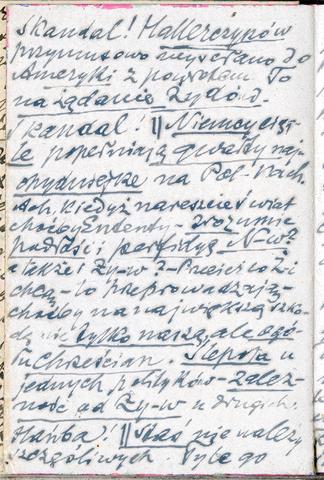 Skandal! Hallerczyków
przymusowo wysłano do
Ameryki z powrotem. To
na żądanie Żydów.
Skandal! || Niemcy ciąg-
le popełniają gwałty naj-
ohydniejsze na Pol. Wsch.
Ach, kiedyż nareszcie świat
choćby Ententy - zrozumie
podłość i perfidyę N-w?
a także i Ży-w? - Przecież co Ży
chcą - to przeprowadzają -
choćby na największą szko-
dę nie tylko naszą, ale ogó-
łu Chrześcian. Ślepota u
jednych polityków - zależ-
ność od Ży-w u drugich.
Hańba! || Staś nie należy
szczęśliwych. Tyle go